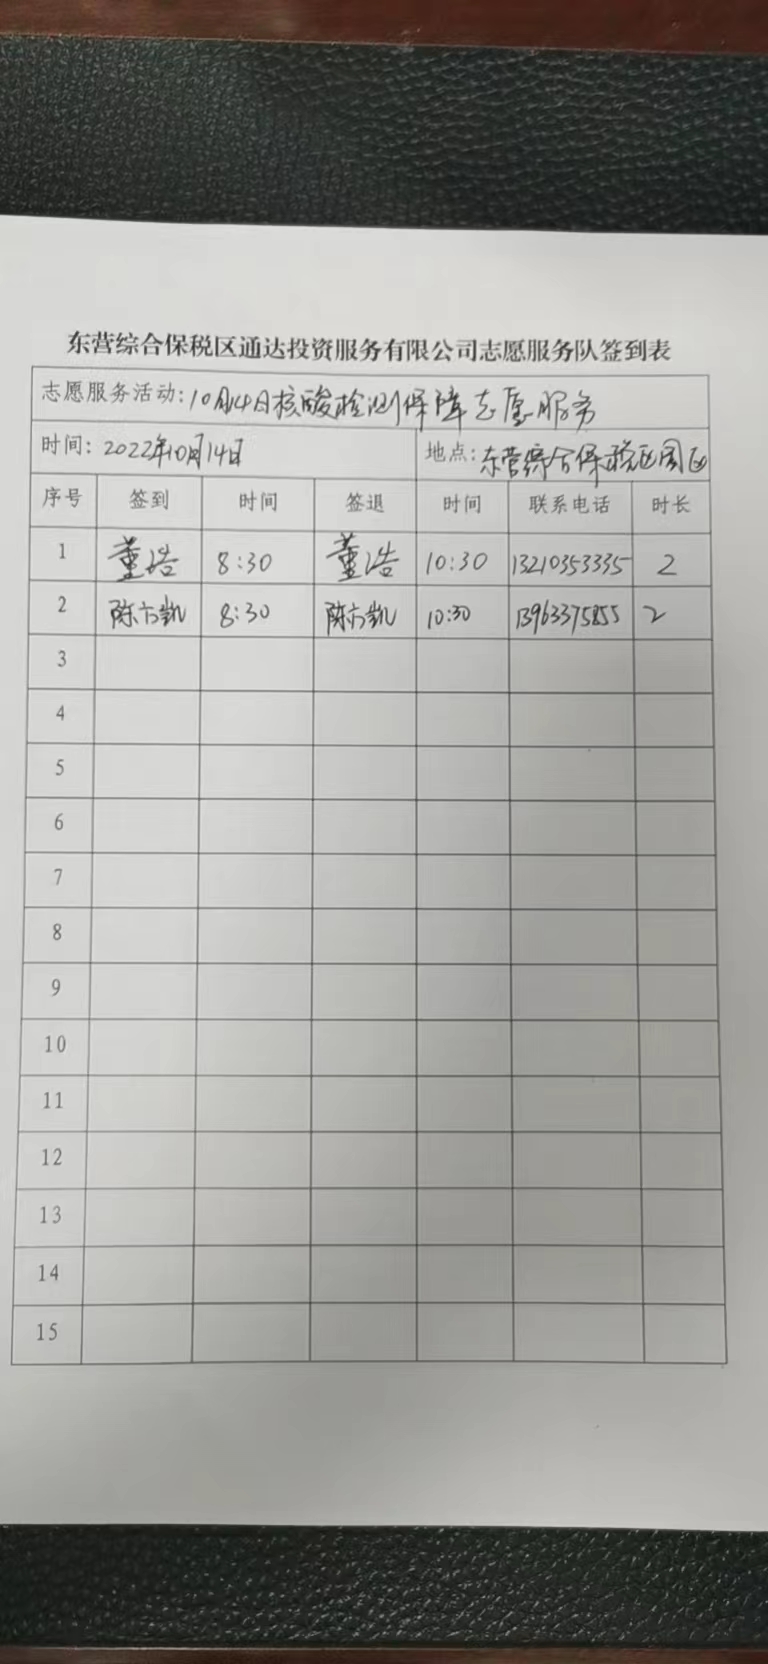 东营综合保税区通达投资服务有限公司志愿服务队签到表
志愿服务活动:10月14日核酸检测保障志愿服务
时间: 2022年10月14日 地点: 东营综合保税区园区
序号 签到 时间 签退 时间 联系电话 时长
1 董浩 8:30 董浩 10:30 13210353335 2
2 陈方凯 8:30 陈方凯 10:30 13963375855 2
3
4
5
6
7
8
9
10
11
12
13
14
15